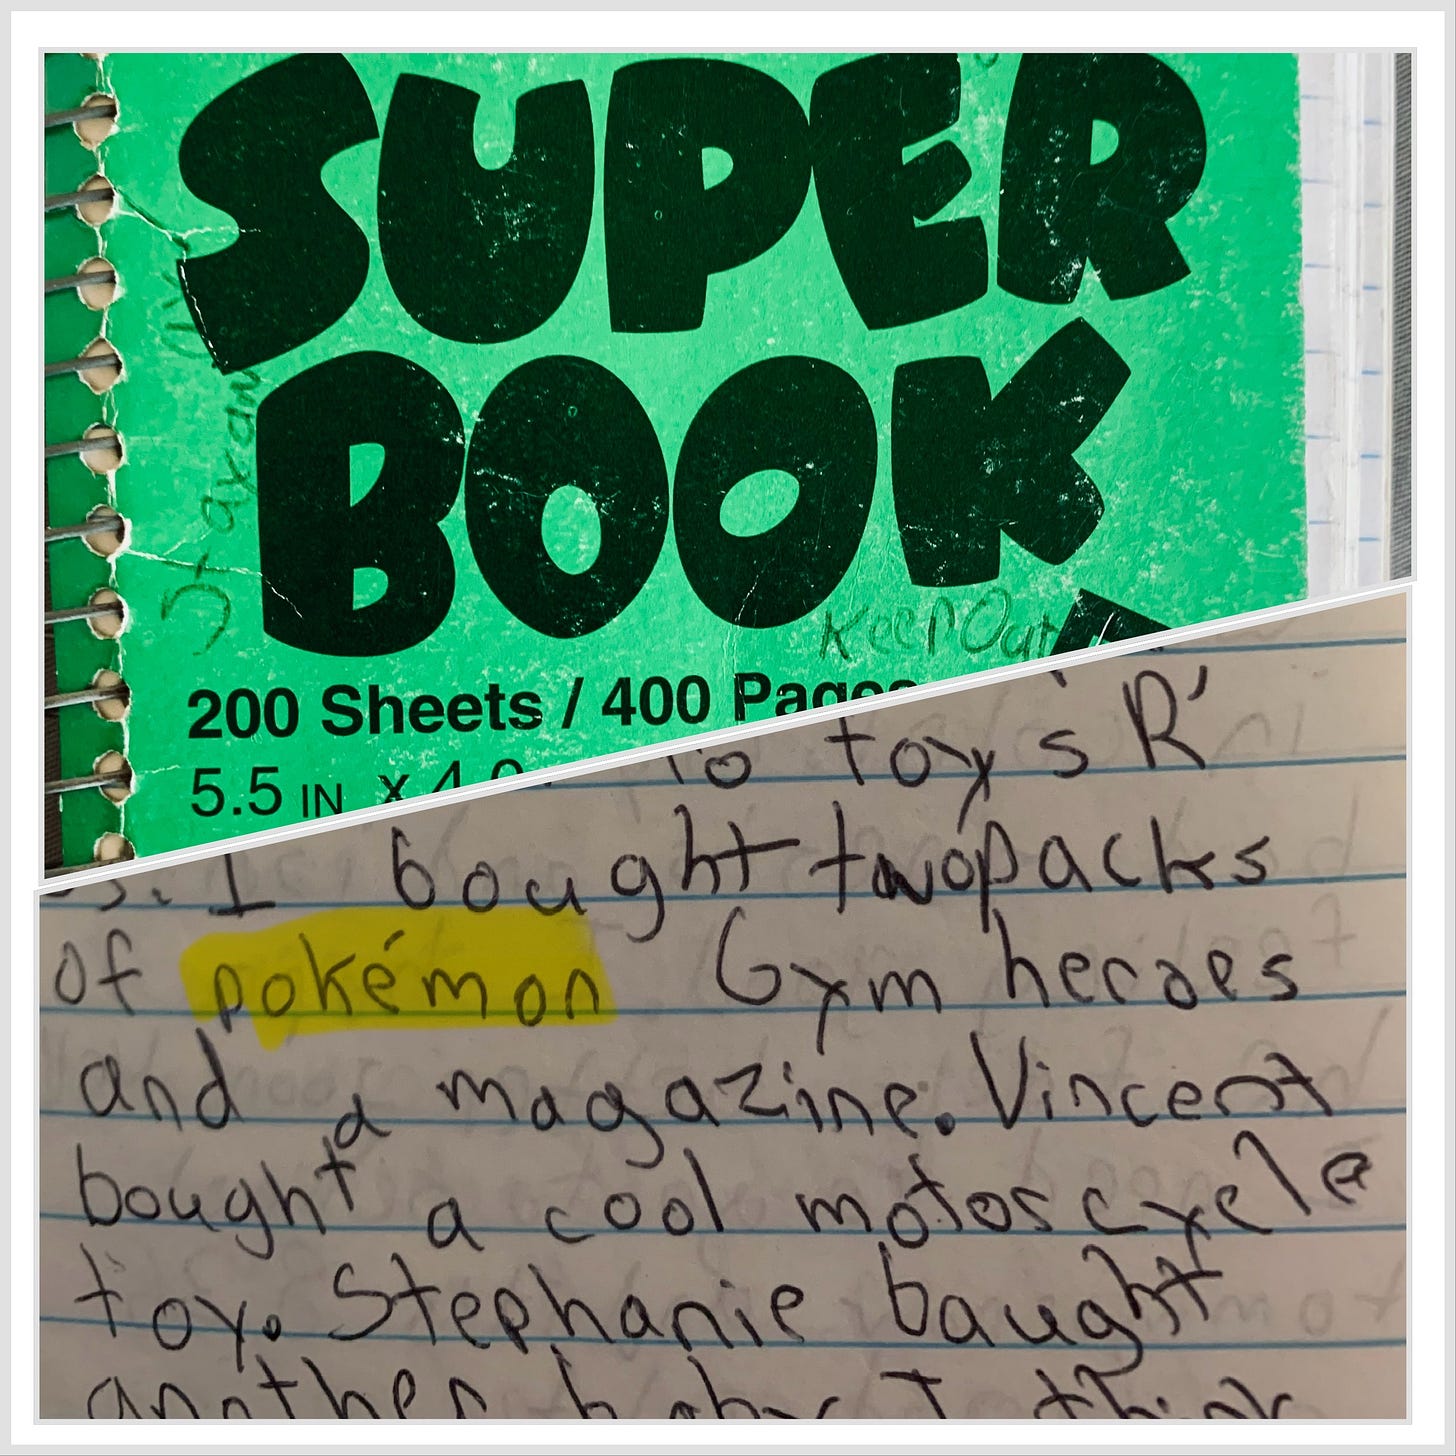 SUPER
BOOK
Keep Out
200 Sheets / 400 Pages
5.5 IN x
to toy's R'
I bought two packs
of pokémon Gym heroes
and a magazine. Vincent
bought a cool motoscycle
toy. Stephanie baught
another baby I think